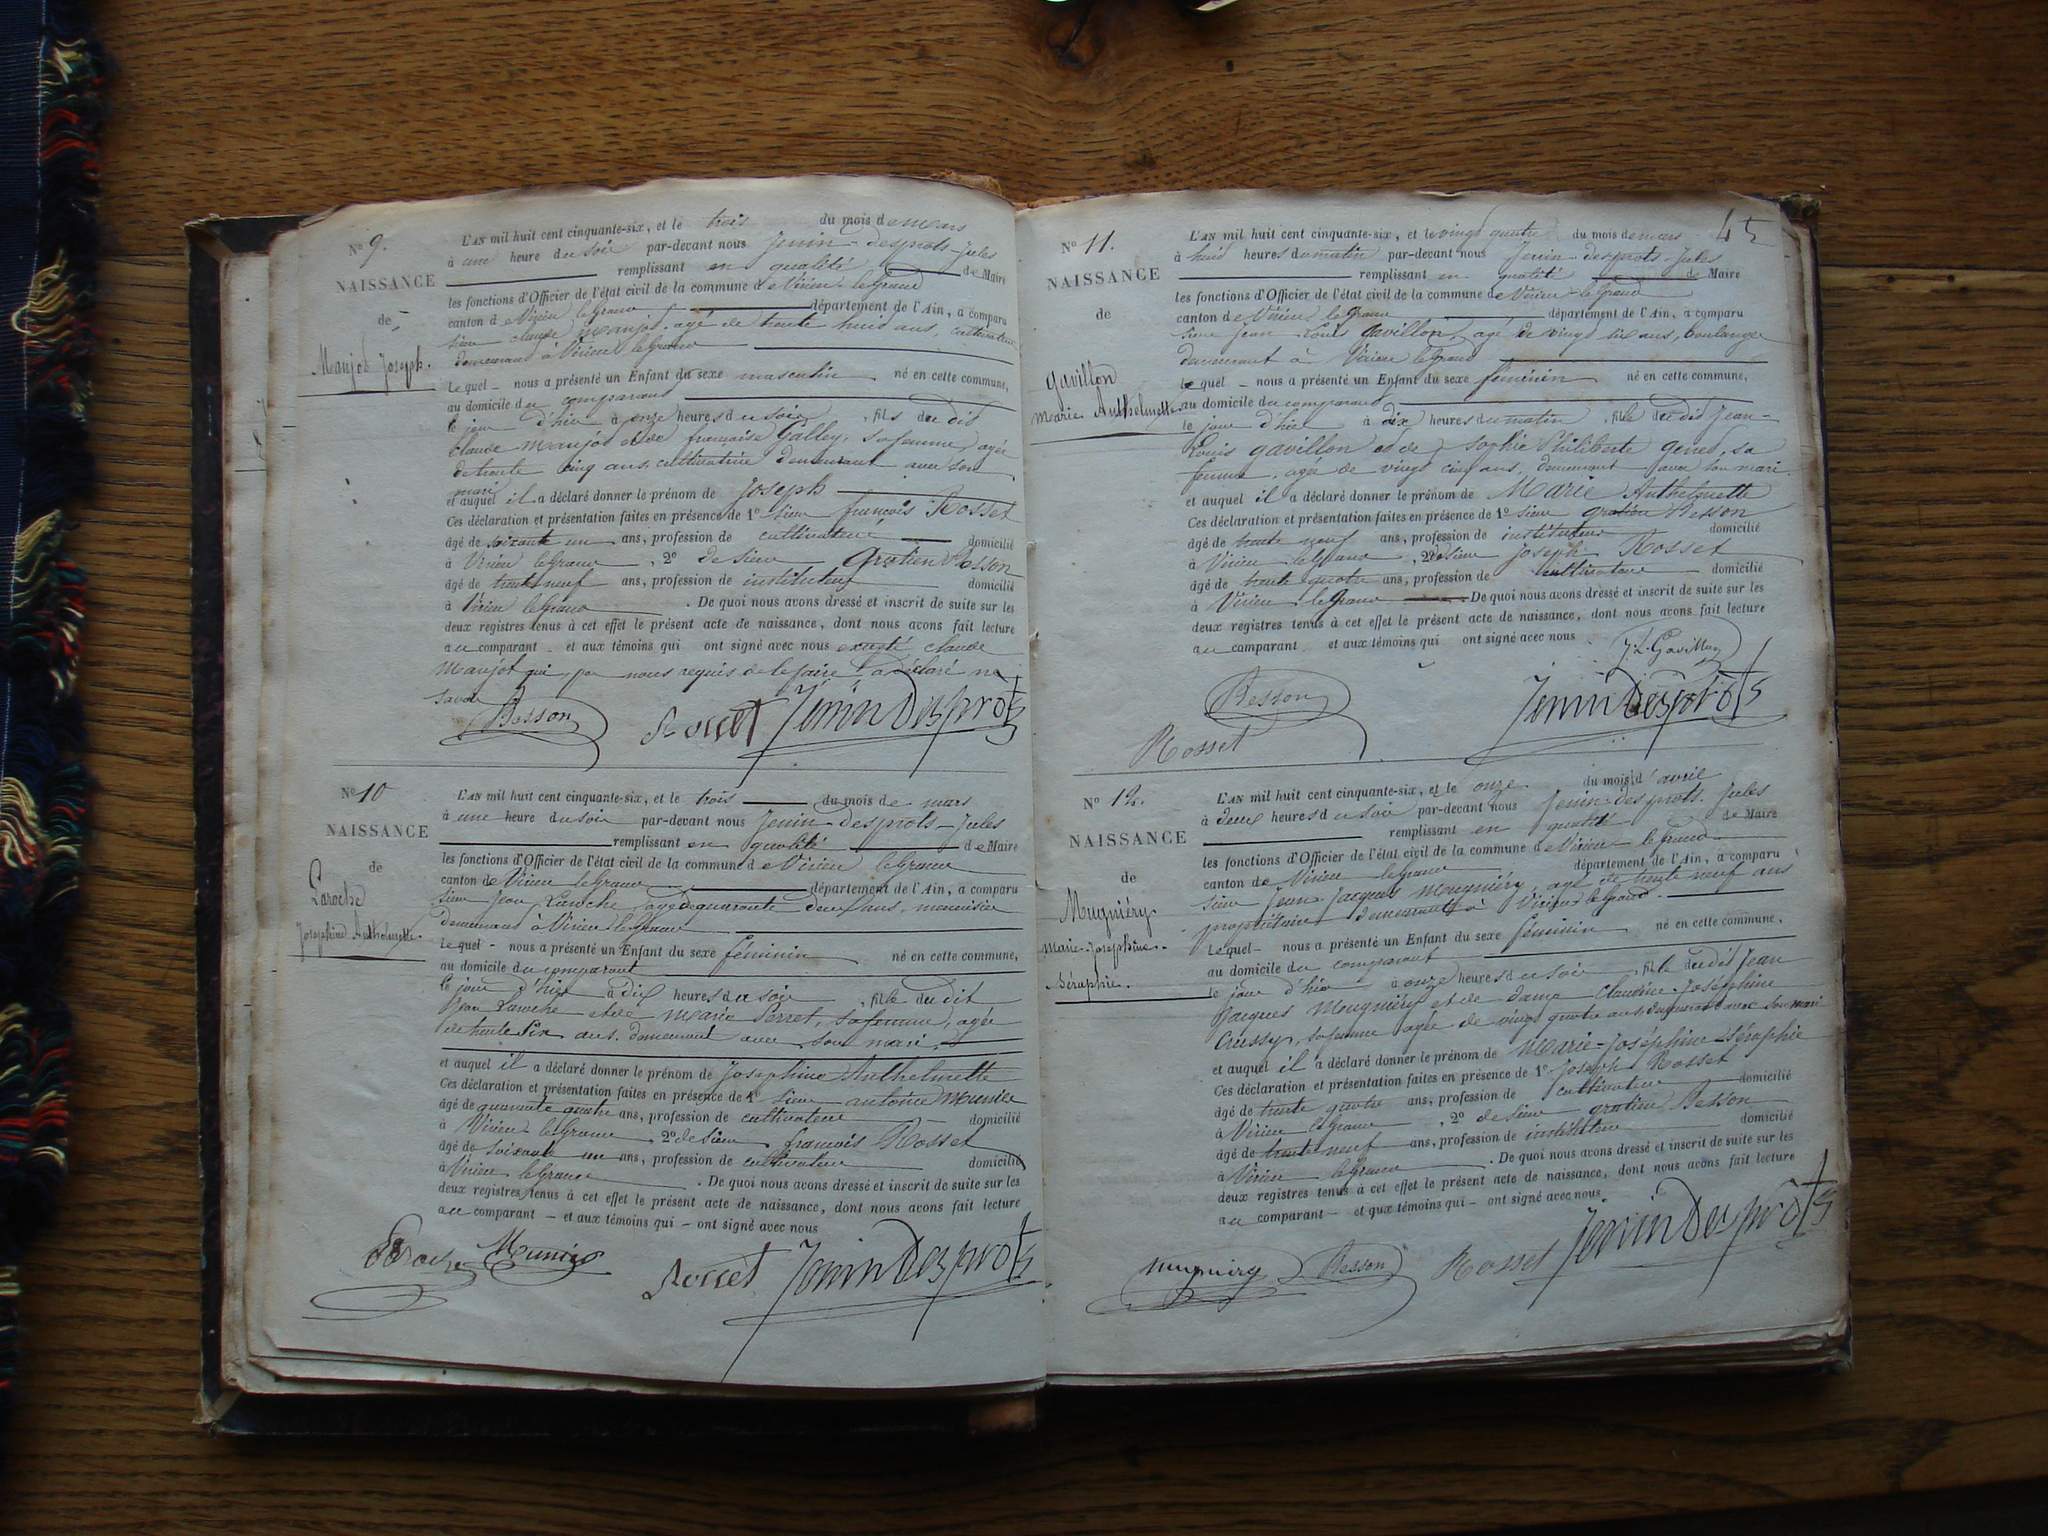 No 9.
NAISSANCE
de
Maujot Joseph.
L'AN mil huit cent cinquante-six, et le trois du mois de mars
à une heure du soir par-devant nous Jenin-desprots-Jules
remplissant en qualité de Maire
les fonctions d'Officier de l'état civil de la commune de Virieu-le Grand
canton de Virieu le Grand département de l'Ain, a comparu
sieur claude Maujot, agé de trente huit ans, cultivateur
demeurant à Virieu le Grand
Lequel - nous a présenté un Enfant du sexe masculin né en cette commune,
au domicile du comparant
le jour d'hier à onze heures du soir, fils du dit
Claude Maujot et de françoise Galley, sa femme, agée
de trente cinq ans, cultivatrice demeurant avec son
mari
et auquel il a déclaré donner le prénom de Joseph
Ces déclaration et présentation faites en présence de 1o sieur françois Rosset
âgé de soixante un ans, profession de cultivateur domicilié
à Virieu le Grand, 2o de sieur Gratien Besson
âgé de trente neuf ans, profession de instituteur domicilié
à Virieu le Grand. De quoi nous avons dressé et inscrit de suite sur les
deux registres tenus à cet effet le présent acte de naissance, dont nous avons fait lecture
au comparant et aux témoins qui ont signé avec nous excepté claude
Maujot qui, par nous requis de le faire a déclaré ne
savoir
Besson Rosset Jenin Desprots
No 10
NAISSANCE
de
Laroche
Josephine Anthelmette.
L'AN mil huit cent cinquante-six, et le trois du mois de mars
à une heure du soir par-devant nous Jenin-desprots-Jules
remplissant en qualité de Maire
les fonctions d'Officier de l'état civil de la commune de Virieu le Grand
canton de Virieu le Grand département de l'Ain, a comparu
sieur Jean Laroche, agé de quarante deux ans, menuisier
demeurant à Virieu le Grand
Lequel - nous a présenté un Enfant du sexe féminin né en cette commune,
au domicile du comparant
le jour d'hier à dix heures du soir, fille du dit
Jean Laroche et de Marie Perret, sa femme, agée
de trente six ans, demeurant avec son mari
et auquel il a déclaré donner le prénom de Josephine Anthelmette
Ces déclaration et présentation faites en présence de 1o sieur antoine Munier
âgé de quarante quatre ans, profession de cultivateur domicilié
à Virieu le Grand, 2o de sieur françois Rosset
âgé de soixante un ans, profession de cultivateur domicilié
à Virieu le Grand. De quoi nous avons dressé et inscrit de suite sur les
deux registres tenus à cet effet le présent acte de naissance, dont nous avons fait lecture
au comparant - et aux témoins qui - ont signé avec nous
Laroche Munier Rosset Jenin Desprots
45
No 11.
NAISSANCE
de
Gavillon
Marie Anthelmette
L'AN mil huit cent cinquante-six, et le vingt quatre du mois de mars
à huit heures du matin par-devant nous Jenin-desprots-Jules
remplissant en qualité de Maire
les fonctions d'Officier de l'état civil de la commune de Virieu-le Grand
canton de Virieu le Grand département de l'Ain, a comparu
sieur Jean Louis Gavillon, agé de vingt six ans, boulanger
demeurant à Virieu le Grand
Lequel - nous a présenté un Enfant du sexe féminin né en cette commune,
au domicile du comparant
le jour d'hier à dix heures du matin, fille du dit Jean-
Louis Gavillon et de Sophie Philiberte, sa
femme, agée de vingt cinq ans, demeurant avec son mari.
et auquel il a déclaré donner le prénom de Marie Anthelmette
Ces déclaration et présentation faites en présence de 1o sieur gratien Besson
âgé de trente neuf ans, profession de instituteur domicilié
à Virieu le Grand, 2o de sieur joseph Rosset
âgé de trente quatre ans, profession de cultivateur domicilié
à Virieu le Grand. De quoi nous avons dressé et inscrit de suite sur les
deux registres tenus à cet effet le présent acte de naissance, dont nous avons fait lecture
au comparant et aux témoins qui ont signé avec nous
J. L. Gavillon
Besson Jenin Desprots
Rosset
No 12.
NAISSANCE
de
Mugniéry
Marie-Josephine-
Séraphie.
L'AN mil huit cent cinquante-six, et le onze du mois d'avril
à deux heures du soir par-devant nous Jenin-desprots-Jules
remplissant en qualité de Maire
les fonctions d'Officier de l'état civil de la commune de Virieu le Grand
canton de Virieu le Grand département de l'Ain, a comparu
sieur Jean Jacques Mugniéry, agé de trente neuf ans
propriétaire demeurant à Virieu le Grand.
Lequel - nous a présenté un Enfant du sexe féminin né en cette commune,
au domicile du comparant
le jour d'hier à onze heures du soir, fille du dit Jean
Jacques Mugniéry et de dame Claudine Joséphine
Crussy, sa femme agée de vingt quatre ans, demeurant avec son mari
et auquel il a déclaré donner le prénom de Marie-Joséphine-Séraphie
Ces déclaration et présentation faites en présence de 1o Joseph Rosset
âgé de trente quatre ans, profession de cultivateur domicilié
à Virieu le Grand, 2o de sieur gratien Besson
âgé de trente neuf ans, profession de instituteur domicilié
à Virieu le Grand. De quoi nous avons dressé et inscrit de suite sur les
deux registres tenus à cet effet le présent acte de naissance, dont nous avons fait lecture
au comparant - et aux témoins qui - ont signé avec nous.
Mugniéry Besson Rosset Jenin Desprots